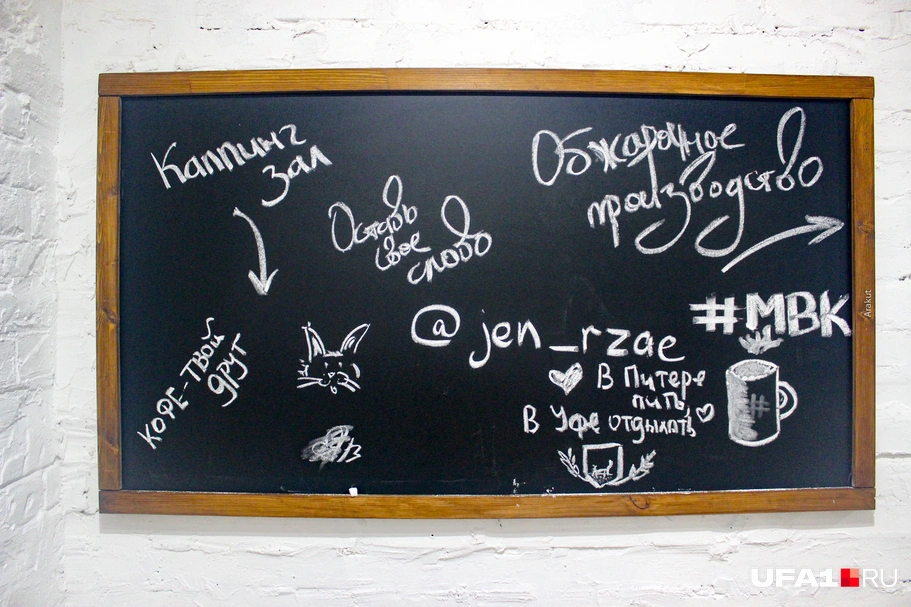 Каппинг
зал
Обжарочное
производство
Оставь
свое
слово
@jen_rzae
#МВК
В Питере
пить,
В Уфе отдыхать
КОФЕ-ТВОЙ
друг
#
Arakut
UFA1.RU